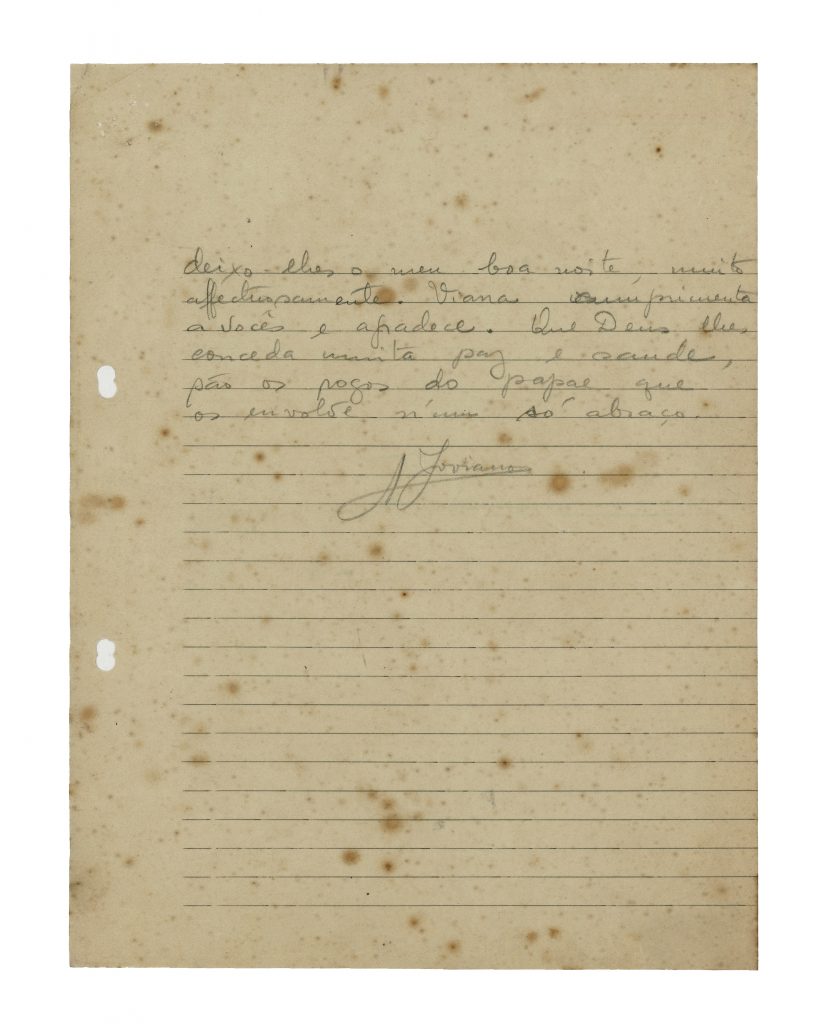 deixo-lhes o meu boa noite, muito
affectuosamente. Viana cumprimenta
a vocês e agradece. Que Deus lhes
conceda muita paz e saude,
são os rogos do papae que
os envolve n'um só abraço.
A Joviano